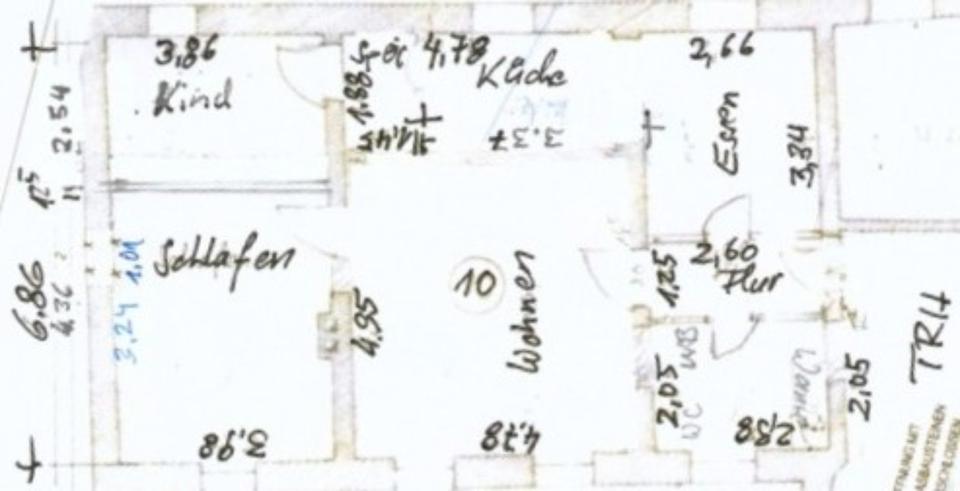 3,86
Kind
4,78
Küche
1.88
3.37
2,66
Essen
3,34
2.54
6.86
4,36
3.24 1.01
Schlafen
3.98
4,95
10
Wohnen
4.78
2,60
Flur
1,25
2,05
WC
WB
Wanne
2.88
2,05
TRH